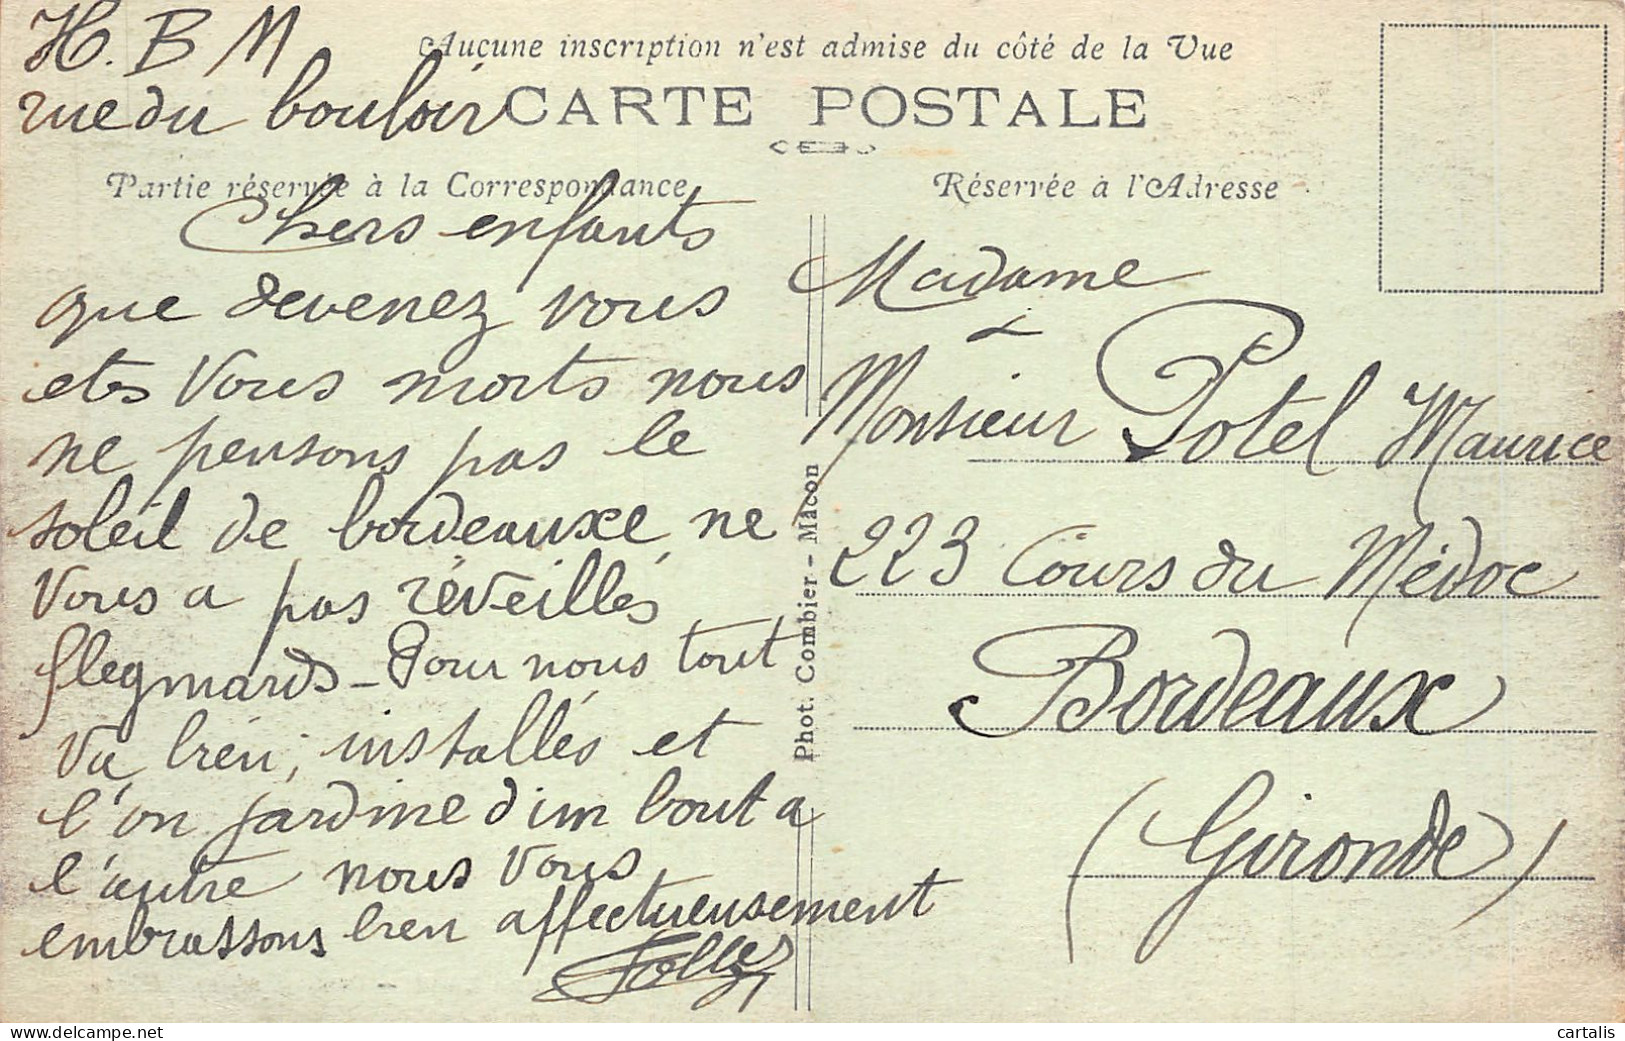 H. B M
rue du bouloir
Aucune inscription n'est admise du côté de la Vue
CARTE POSTALE
Partie réservée à la Correspondance
Réservée à l'Adresse
Chers enfants
que devenez vous
etes Vous morts nous
ne pensons pas le
soleil de bordeauxe ne
Vous a pas réveillés
flegmards - Pour nous tout
Va bien, installés et
l'on jardine d'un bout a
l'autre nous vous
embrassons bien affectueusement
Phot. Combier - Mâcon
Madame
&
Monsieur Potel Maurice
223 Cours du Médoc
Bordeaux
(Gironde)
cartalis